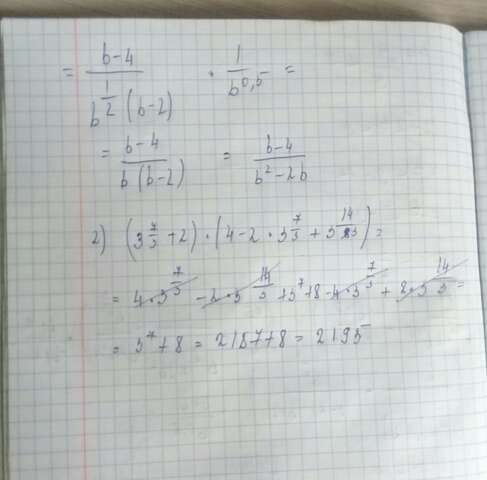 = \frac{b-4}{b^{\frac{1}{2}}(b-2)} \cdot \frac{1}{b^{0,5}} =
= \frac{b-4}{b(b-2)} = \frac{b-4}{b^2-2b}
2) (3^{\frac{7}{3}}+2) \cdot (4-2 \cdot 3^{\frac{7}{3}}+3^{\frac{14}{3}}) =
= 4 \cdot 3^{\frac{7}{3}} - 2 \cdot 3^{\frac{14}{3}} + 3^7 + 8 - 4 \cdot 3^{\frac{7}{3}} + 2 \cdot 3^{\frac{14}{3}} =
= 3^7 + 8 = 2187 + 8 = 2195